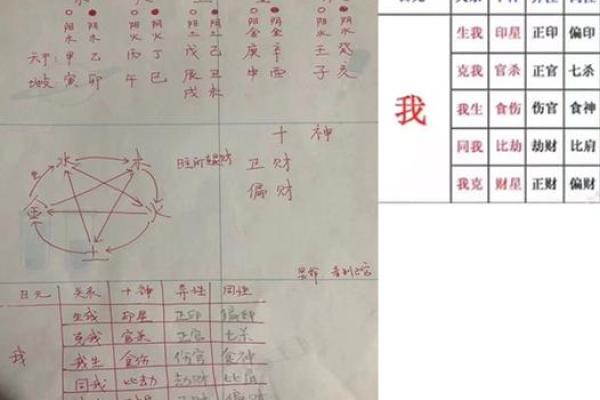 阳木 阴木 阳火 阴火 阳土 阴土 阳金 阴金 阳水 阴水
天干: 甲 乙 丙 丁 戊 己 庚 辛 壬 癸
地支 寅 卯 午 巳 辰 丑 申 酉 子 亥
戌 未
十 神
财
偏 财
水 木
金 火
土
日元 关系 十神 异性 同性
我
生我 印星 正印 偏印
克我 官杀 正官 七杀
我生 食伤 伤官 食神
同我 比劫 劫财 比肩
偏财
我
生我 印星 正印 偏印
克我 官杀 正官 七杀
我生 食伤 伤官 食神
同我 比劫 劫财 比肩
我克 财星 正财 偏财